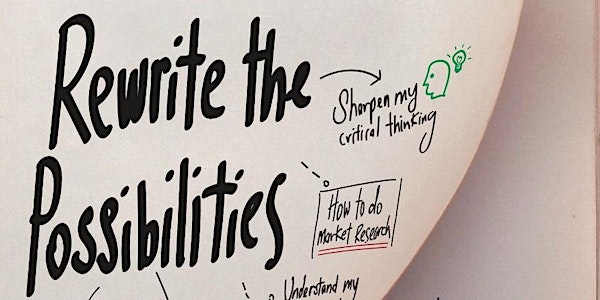 Rewrite the
Possibilities
Sharpen my
critical thinking
How to do
Market Research
Understand my